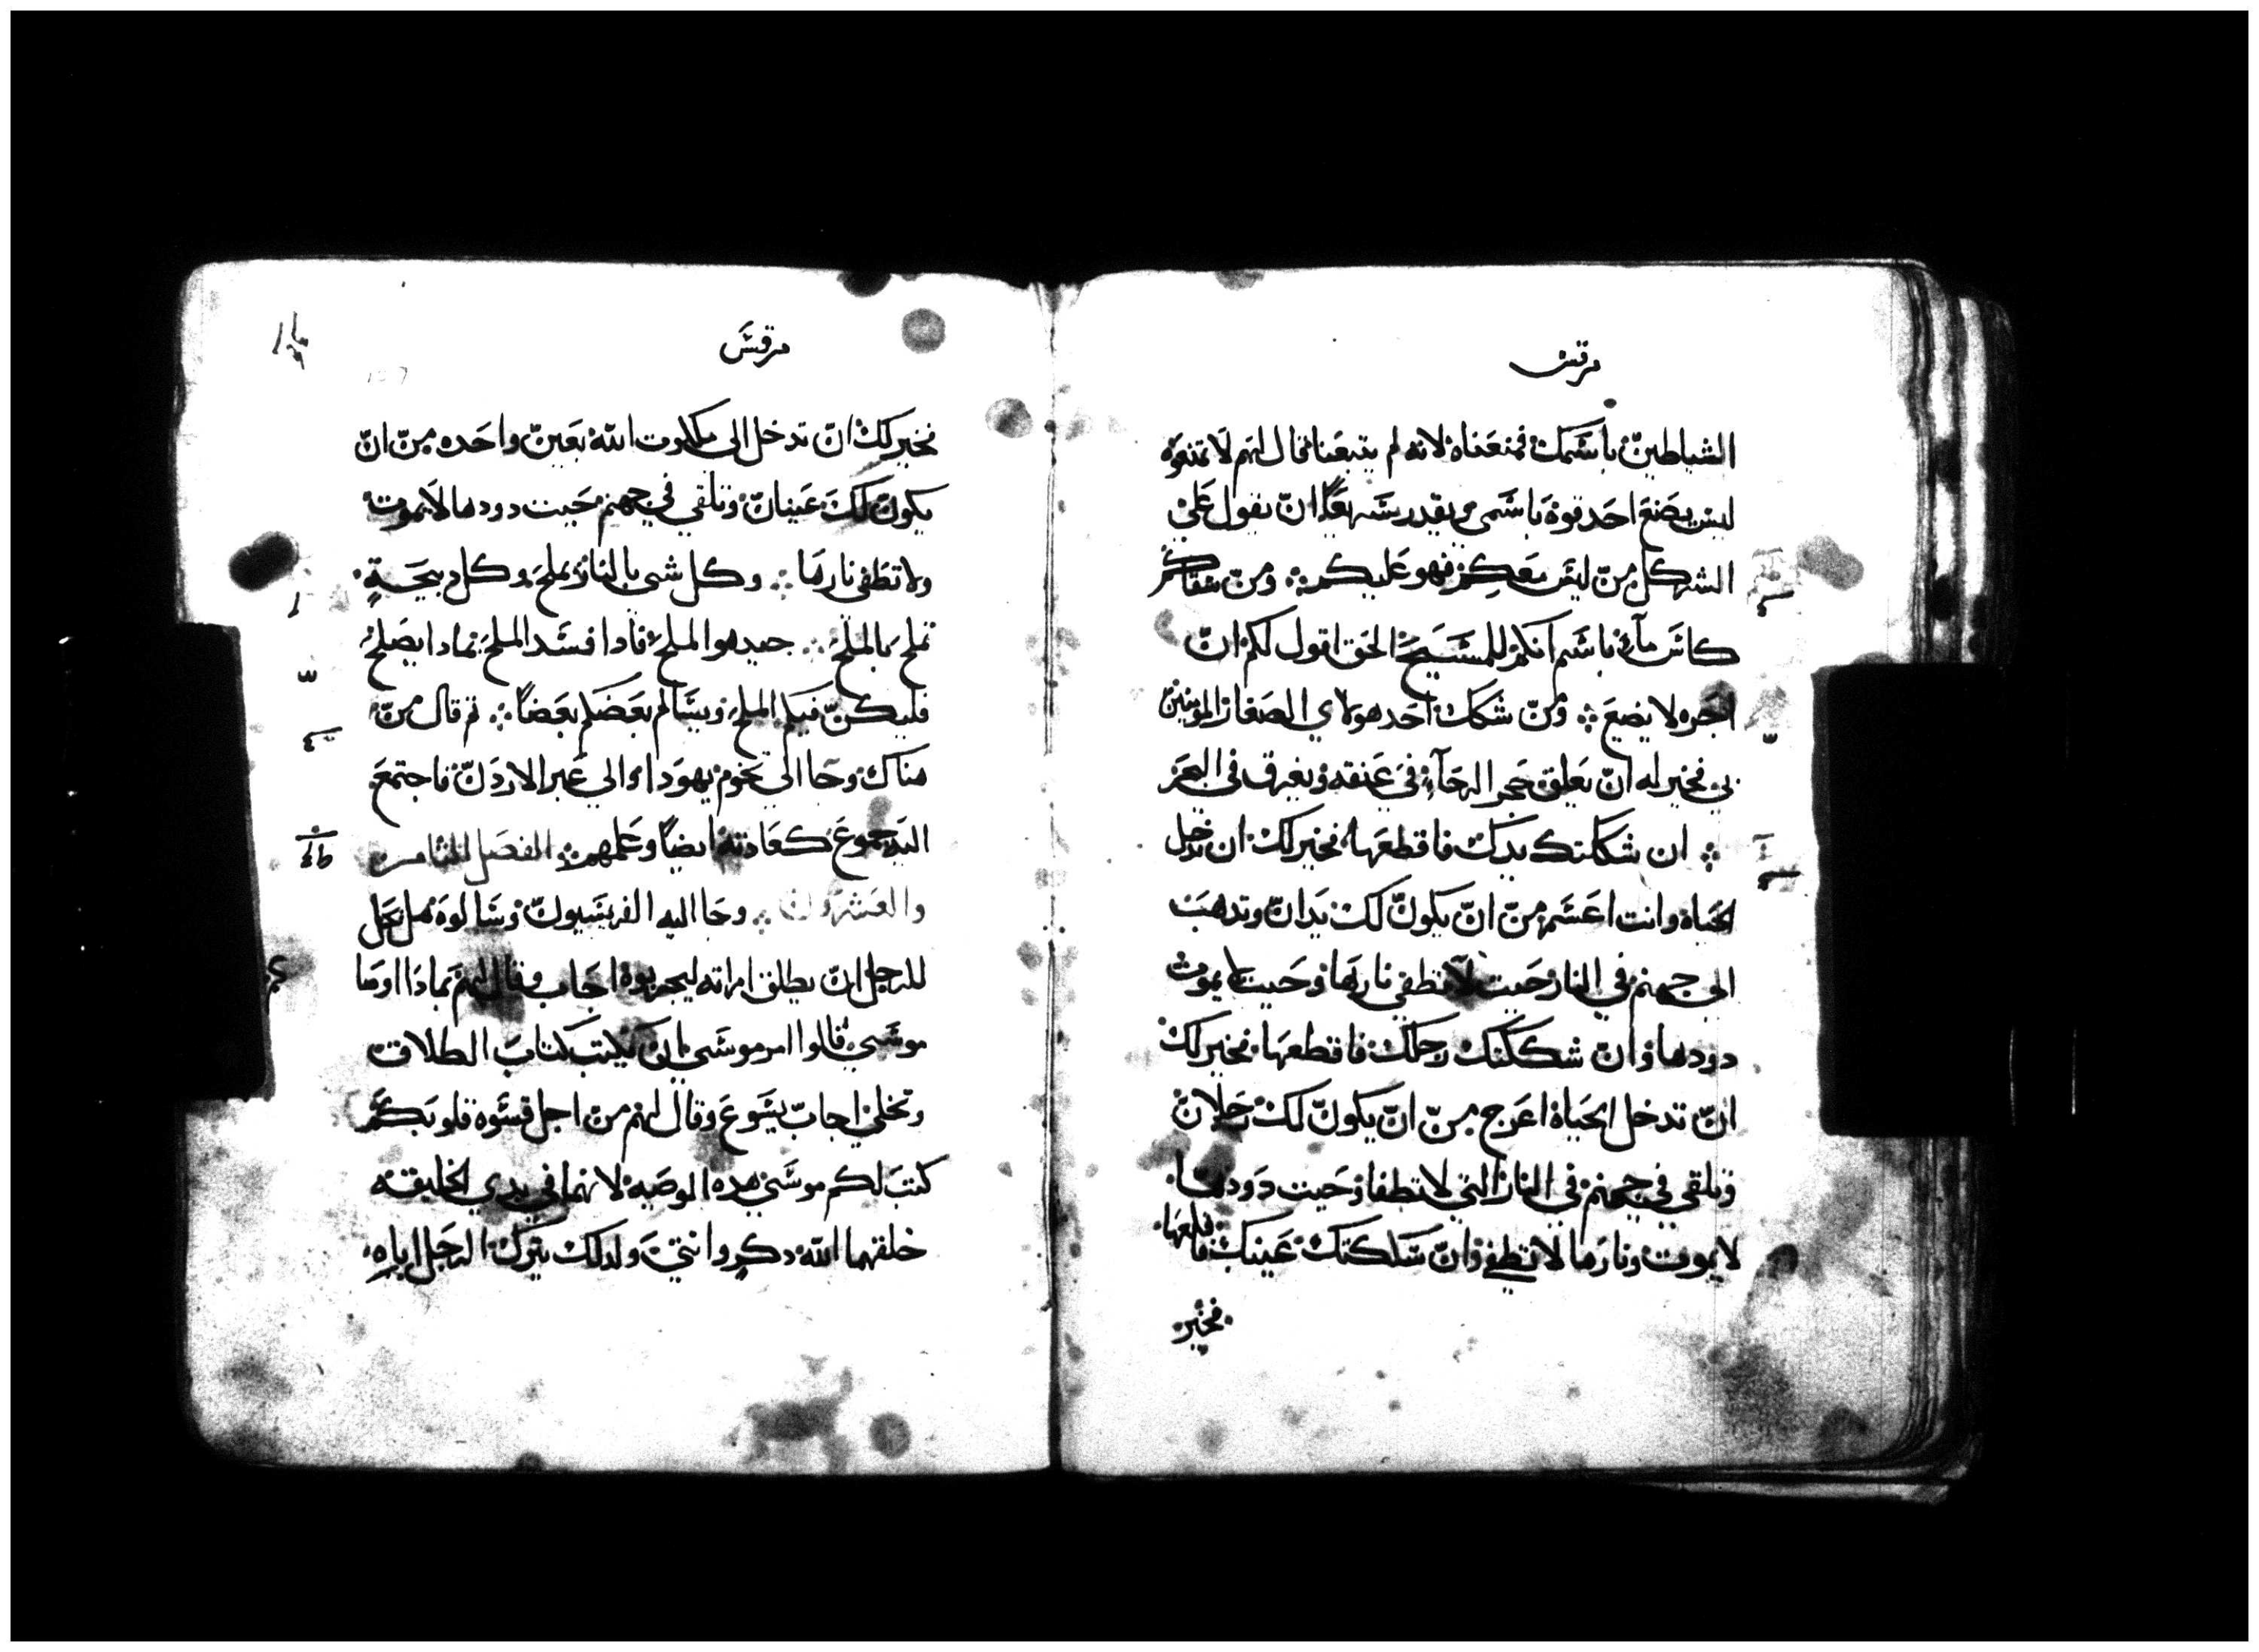 مرقس
الشياطين باسمك فمنعناه لانه لم يتبعنا فقال لهم لا تمنعوه
ليس يصنع احد قوة باسمي ويقدر سريعا ان يقول علي
الشر كل من ليس معكم فهو عليكم ومن سقاكم
كاس ماء باسم انكم للمسيح الحق اقول لكم ان
اجره لا يضيع ومن شكك احد هولاي الصغار المومنين
بي فخير له ان يعلق حجر الرحاء في عنقه ويغرق في البحر
ان شككتك يدك فاقطعها فخير لك ان تدخل
الحياة وانت اعسم من ان يكون لك يدان وتدهب
الى جهنم في النار حيت لا تطفي نارها وحيت لا يموت
دودها وان شككتك رجلك فاقطعها فخير لك
ان تدخل الحياة اعرج من ان يكون لك رجلان
وتلقي في جهنم في النار التي لا تطفا وحيت دودها
لا يموت ونارها لا تطفي وان شككتك عينك فاقلعها
فخير
مرقس
فخير لك ان تدخل الى ملكوت الله بعين واحده من ان
يكون لك عينان وتلقي في جهنم حيت دودها لا يموت
ولا تطفي نارها وكل شي بالنار يملح وكل دبيحة
تملح بالملح جيد هو الملح فادا فسد الملح بمادا يصلح
فليكن فيكم الملح ويسالم بعضكم بعضا تم قال من
هناك وجا الي تخوم يهودا والي عبر الاردن فاجتمع
اليه جموع كعادته ايضا وعلمهم الفصل الثامن
والعشرون وجا اليه الفريسيون وسالوه هل يحل
للرجل ان يطلق امراته ليجربوه اجاب وقال لهم بمادا اوصا
موسي قالوا امر موسي ان يكتب كتاب الطلاق
وتخلي اجاب يسوع وقال لهم من اجل قسوه قلوبكم
كتب لكم موسي هده الوصيه لانهما في بدي الخليقه
خلقهما الله دكر وانتي ولدلك يترك الرجل اباه